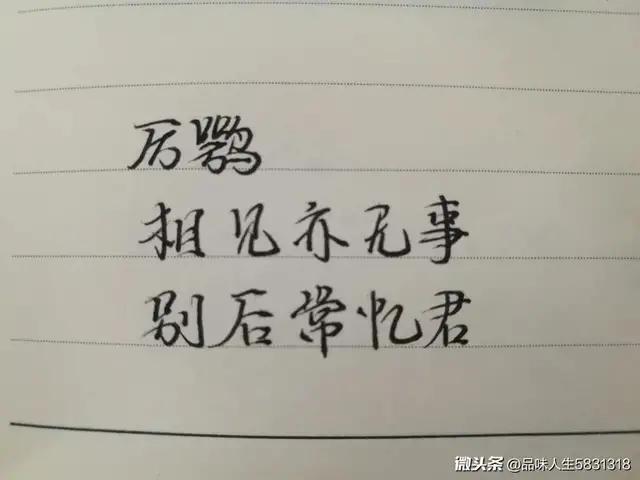 厉鹗
相见亦无事
别后常忆君
微头条 @品味人生5831318